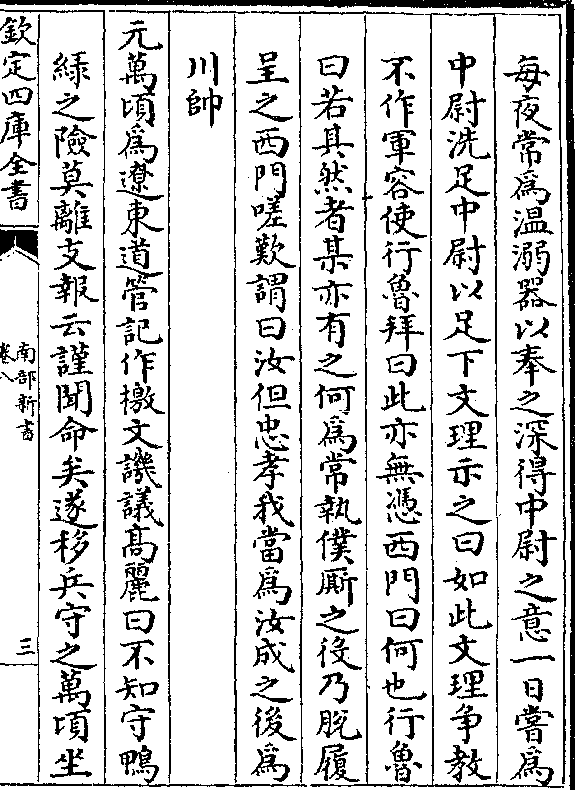 每夜常為温溺器以奉之深得中尉之意一日嘗為
中尉洗足中尉以足下文理示之曰如此文理争教
不作軍容使行魯拜曰此亦無憑西門曰何也行魯
曰若其然者某亦有之何為常執僕厮之役乃脱履
呈之西門嗟歎謂曰汝但忠孝我當為汝成之後為
川帥
元萬頃為遼東道管記作檄文譏議髙麗曰不知守鴨
緑之險莫離支報云謹聞命矣遂移兵守之萬頃坐
欽定四庫全書
南部新書
卷八
三